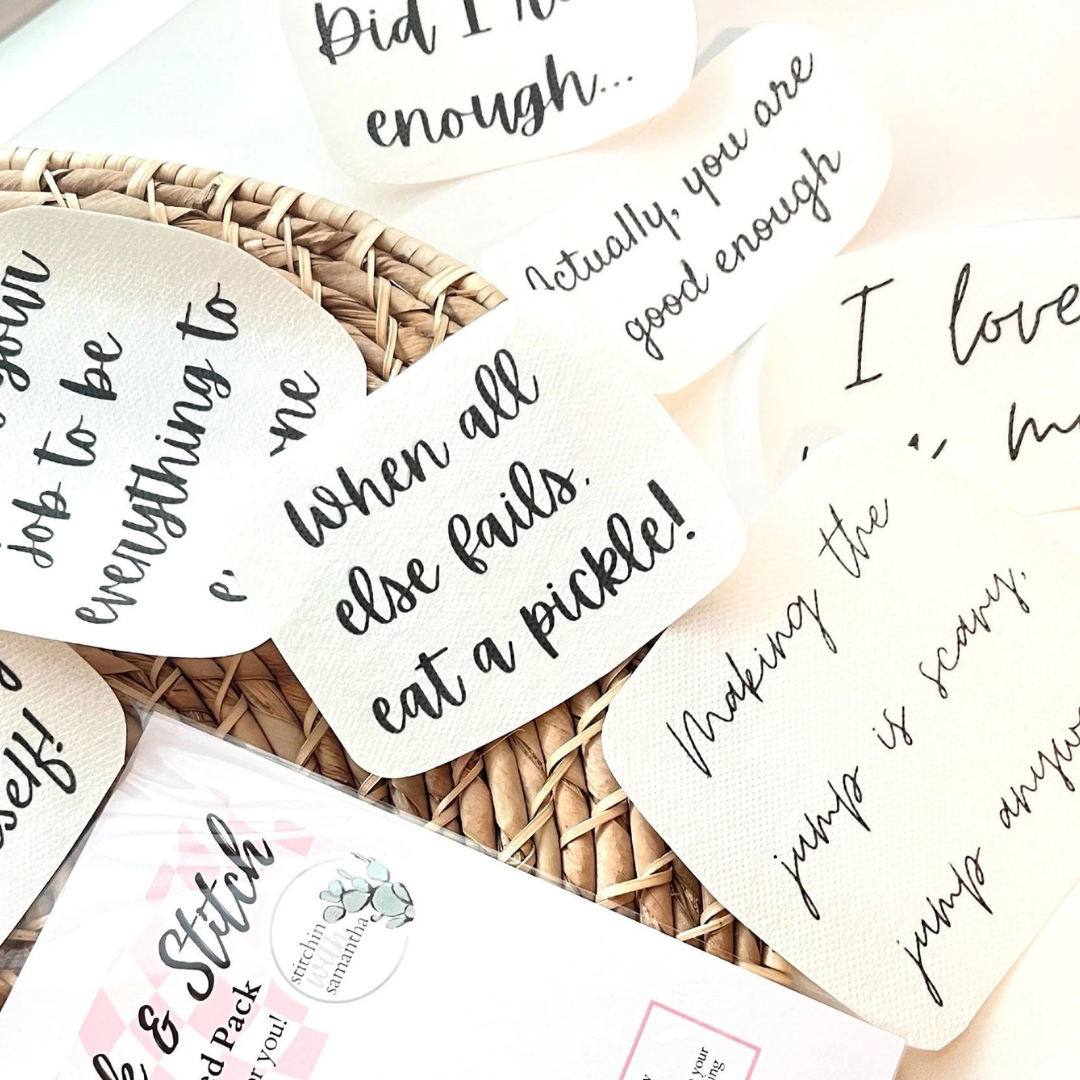 Did I
enough...
Actually, you are
good enough
I love
your
job to be
everything to
When all
else fails,
eat a pickle!
Making the
jump is scary.
jump anyw
self!
& Stitch
Pack
for you!
stitchin
with
samantha
your